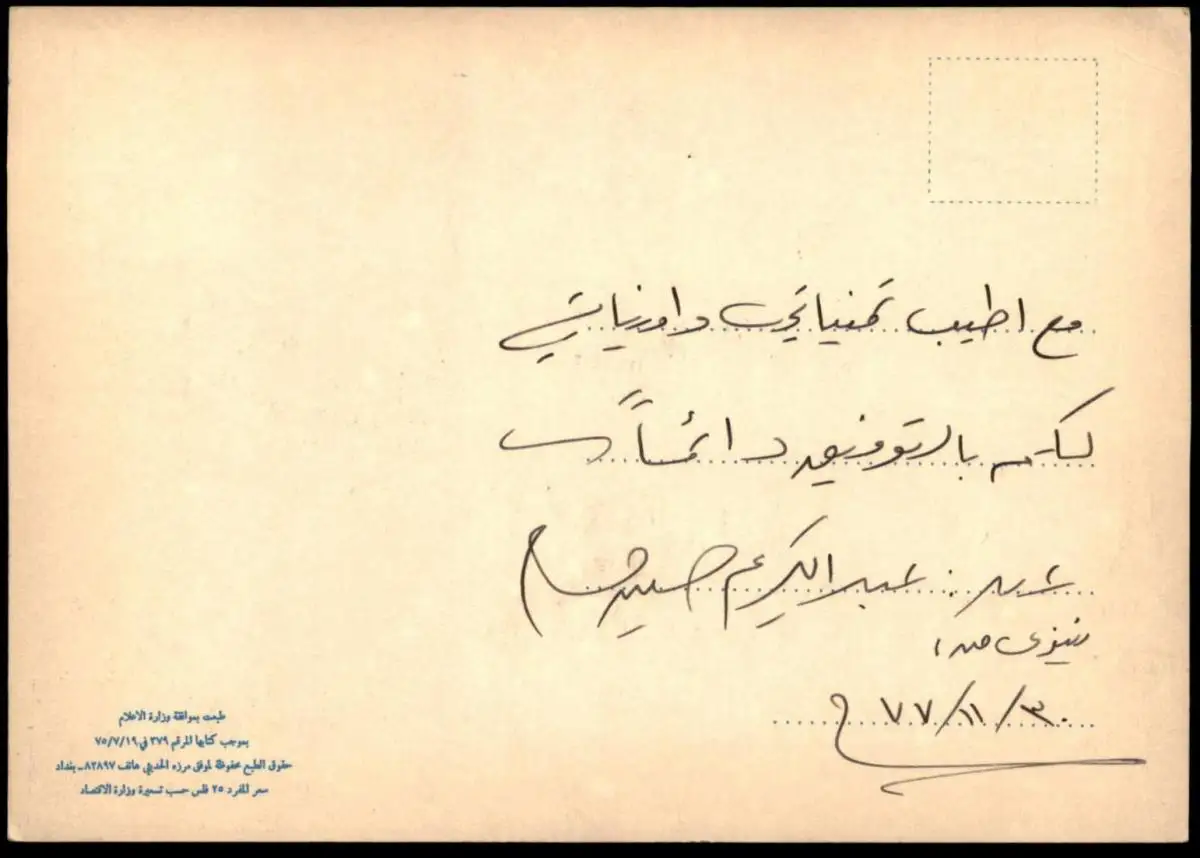 مع اطيب تمنياتي وامنياتي
لكم بالتوفيق دائماً
عبد الكريم حسين
٣٠/١١/٧٧
طبعت بموافقة وزارة الاعلام
بموجب كتابها المرقم ٣٧٩ في ٧٥/٧/١٩
حقوق الطبع محفوظة لموفق مرزه الحديثي هاتف ٨٢٨٩٧ - بغداد
سعر المفرد ٢٥ فلس حسب تسعيرة وزارة الاقتصاد